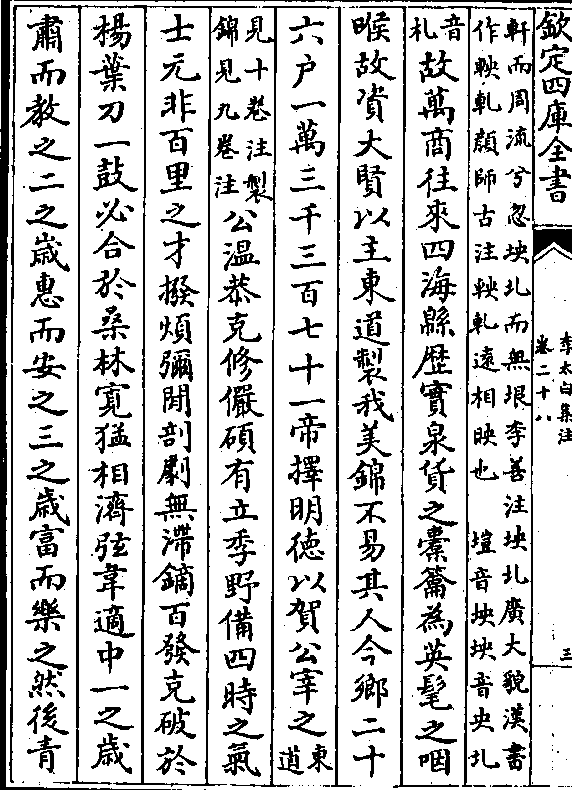 欽定四庫全書
李太白集注
卷二十八
三
軒而周流兮忽坱圠而無垠李善注坱圠廣大貌漢書
作軮軋顔師古注軮軋遠相映也　塏音坱坱音央圠
音
札
故萬商往來四海緜歴實泉貨之橐籥為英髦之咽
喉故資大賢以主東道製我美錦不易其人今鄉二十
六户一萬三千三百七十一帝擇明徳以賀公宰之
東
道
見十卷注製
錦見九卷注
公温恭克修儼碩有立季野備四時之氣
士元非百里之才撥煩彌閒剖劇無滯鏑百發克破於
楊葉刀一鼓必合於桑林寛猛相濟弦韋適中一之歳
肅而教之二之歳惠而安之三之歳富而樂之然後青